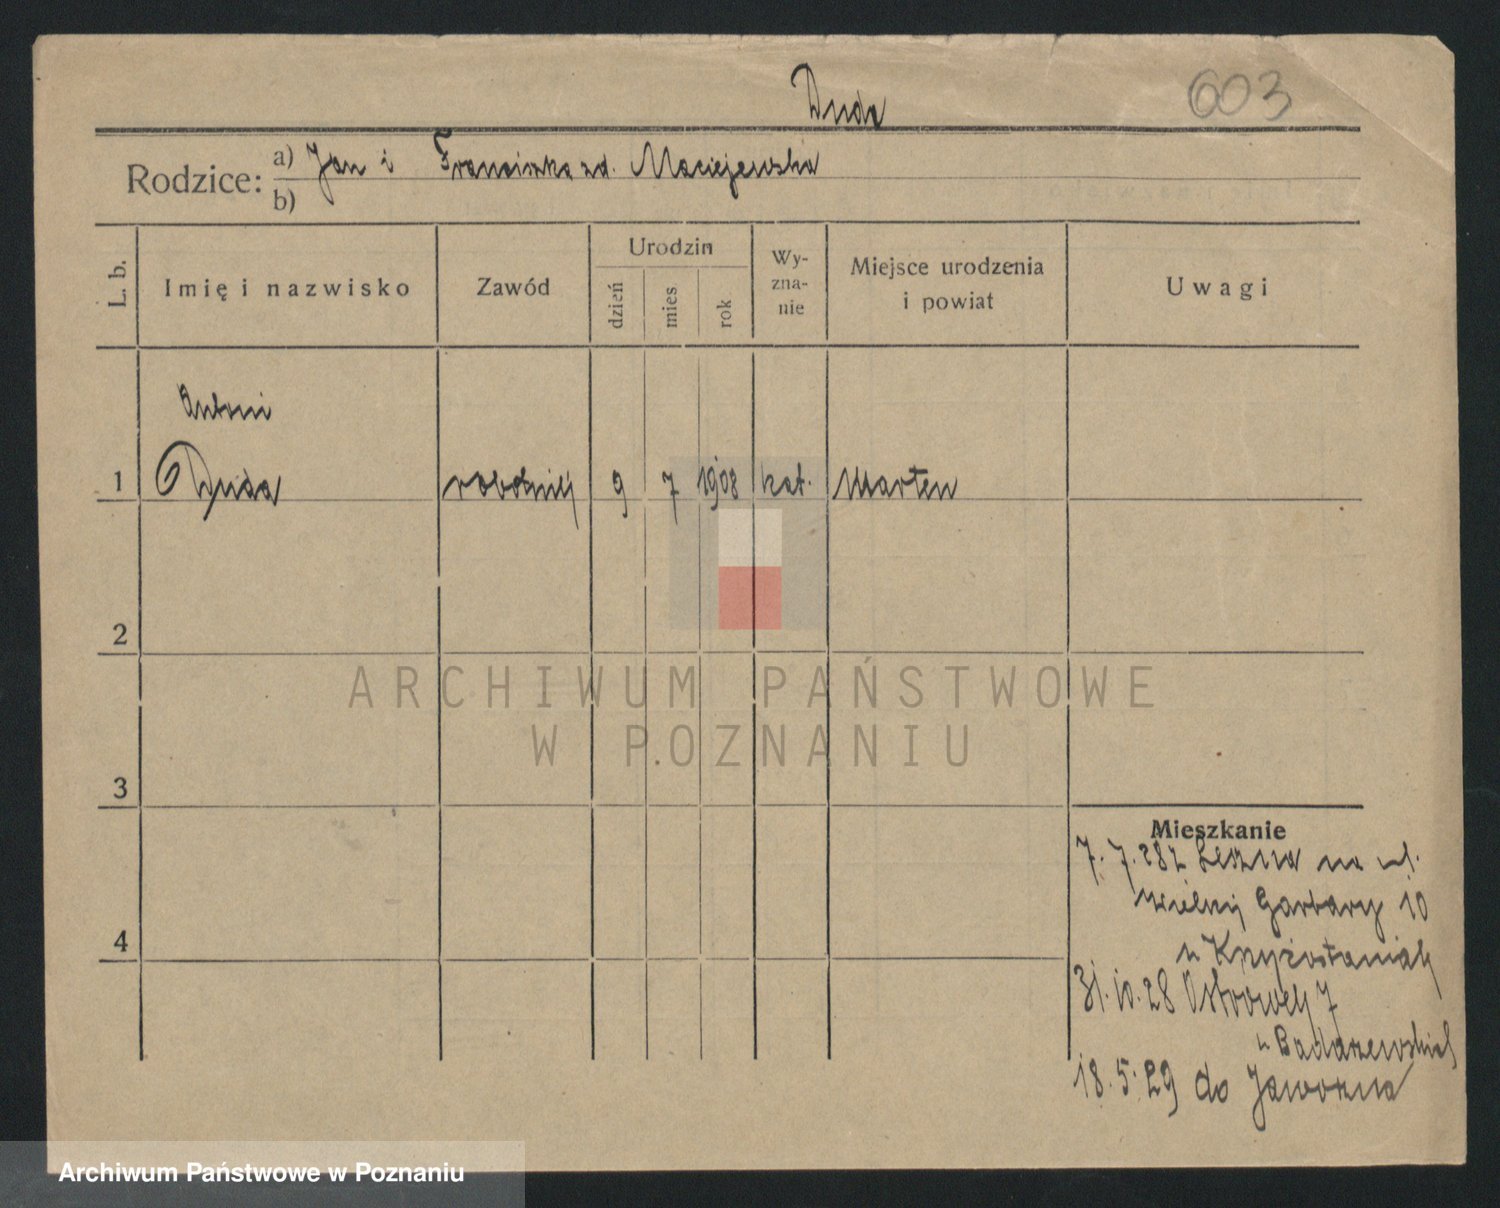 Duda
603
Rodzice: a) Jan i Franciszka zd. Maciejewska
b)
L. b.
Imię i nazwisko
Zawód
Urodzin
dzień
mies
rok
Wy-
zna-
nie
Miejsce urodzenia
i powiat
Uwagi
Antoni
1 Duda robotnik 9 7 1908 kat. Marten
2
3
4
Mieszkanie
7.7.28 z Leszna na ul.
Garbary 10
u
31.10.28 7
u
18.5.29 do Jaworzna
ARCHIWUM PAŃSTWOWE
W POZNANIU
Archiwum Państwowe w Poznaniu